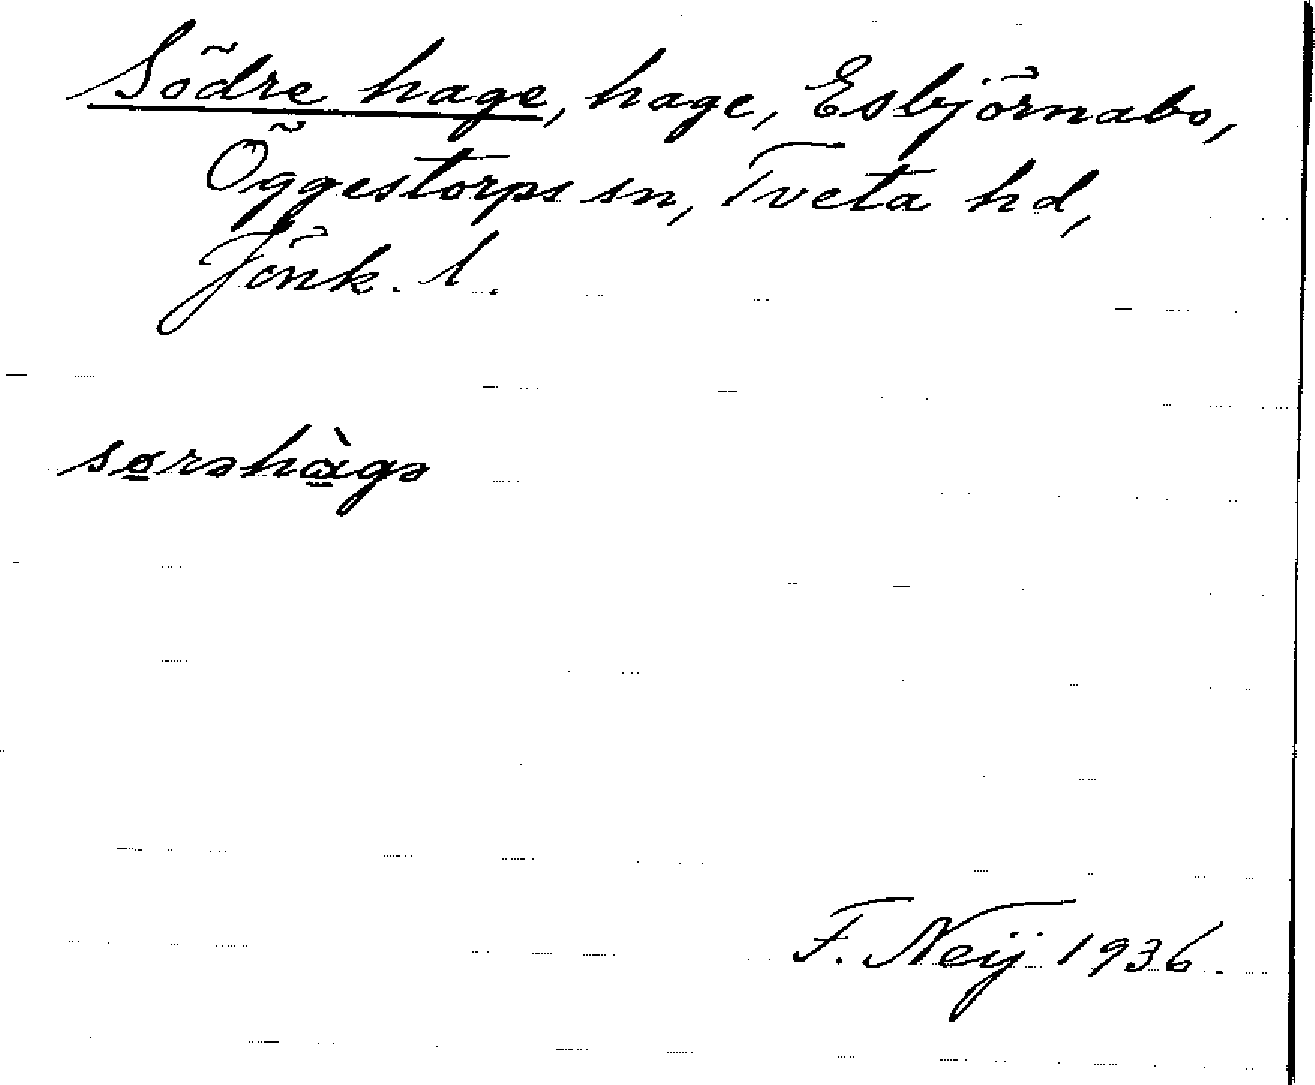 Södre hage, hage, Esbjörnabo,
Öggestorps sn, Tveta hd,
Jönk. l.
sørəhàgə
F. Neij 1936.